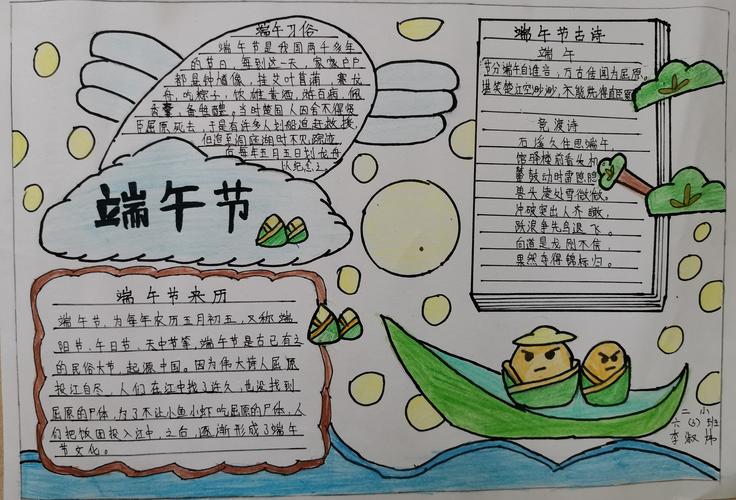 端午习俗
端午节是我国两千多年
的节日，每到这一天，家家户户
都悬钟馗像，挂艾叶菖蒲，赛龙
舟，吃粽子，饮雄黄酒，游百病，佩
香囊，备牲醴。当时楚国人因舍不得贤
臣屈原死去，于是有许多人划船追赶拯救，
他们追至洞庭湖时不见踪迹
后每年五月五日划龙舟
以纪念之。
端午节
端午节来历
端午节，为每年农历五月初五，又称端
阳节、午日节、天中节等，端午节是古已有之
的民俗大节，起源中国。因为伟大诗人屈原
投江自尽，人们在江中找了许久，也没找到
屈原的尸体，为了不让小鱼小虾吃屈原的尸体，人
们把饭团投入江中，之后，逐渐形成了端午
节文化。
端午节古诗
端午
节分端午自谁言，万古传闻为屈原。
堪笑楚江空渺渺，不能洗得直臣冤
竞渡诗
石溪久住思端午，
馆驿楼前看发机
鼙鼓动时雷隐隐
兽头凌处雪微微。
冲破突出人齐瞰，
跃浪争先鸟退飞。
向道是龙刚不信，
果然夺得锦标归。
二小
六(3)班
李淑炜